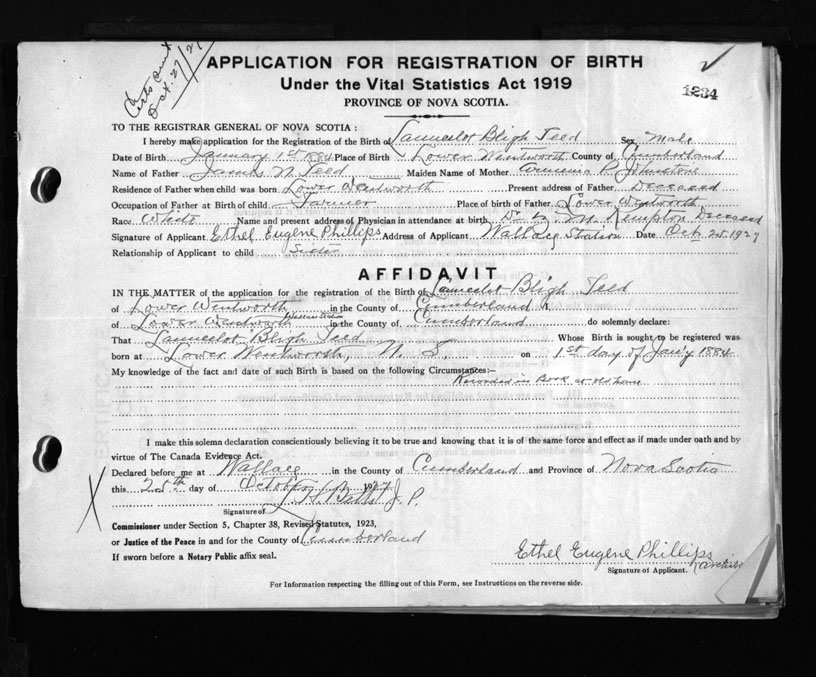 Certs sent
Oct. 27/27
APPLICATION FOR REGISTRATION OF BIRTH
Under the Vital Statistics Act 1919
1234
PROVINCE OF NOVA SCOTIA.
TO THE REGISTRAR GENERAL OF NOVA SCOTIA :
I hereby make application for the Registration of the Birth of Launcelot Bligh Teed Sex Male
Date of Birth January 1st 1884 Place of Birth Lower Wentworth County of Cumberland
Name of Father James N. Teed Maiden Name of Mother P. Johnstone
Residence of Father when child was born Lower Wentworth Present address of Father Deceased
Occupation of Father at Birth of child Farmer Place of birth of Father Lower Wentworth
Race White Name and present address of Physician in attendance at birth Dr. Kempton Deceased
Signature of Applicant Ethel Eugene Phillips Address of Applicant Wallace Station Date Oct 25.1927
Relationship of Applicant to child Sister
AFFIDAVIT
IN THE MATTER of the application for the registration of the Birth of Launcelot Bligh Teed
of Lower Wentworth in the County of Cumberland
Wallace Station
of Lower Wentworth in the County of Cumberland do solemnly declare:
That Launcelot Bligh Teed Whose Birth is sought to be registered was
born at Lower Wentworth, N. S. on 1st day of Jan'y 1884
My knowledge of the fact and date of such Birth is based on the following Circumstances:—
Recorded in Book at old home
I make this solemn declaration conscientiously believing it to be true and knowing that it is of the same force and effect as if made under oath and by
virtue of The Canada Evidence Act.
Declared before me at Wallace in the County of Cumberland and Province of Nova Scotia
this 25th day of October 1927
Betts J. P.
Signature of
Commissioner under Section 5, Chapter 38, Revised Statutes, 1923,
or Justice of the Peace in and for the County of Cumberland
If sworn before a Notary Public affix seal.
Ethel Eugene Phillips
Signature of Applicant.
For Information respecting the filling out of this Form, see Instructions on the reverse side.